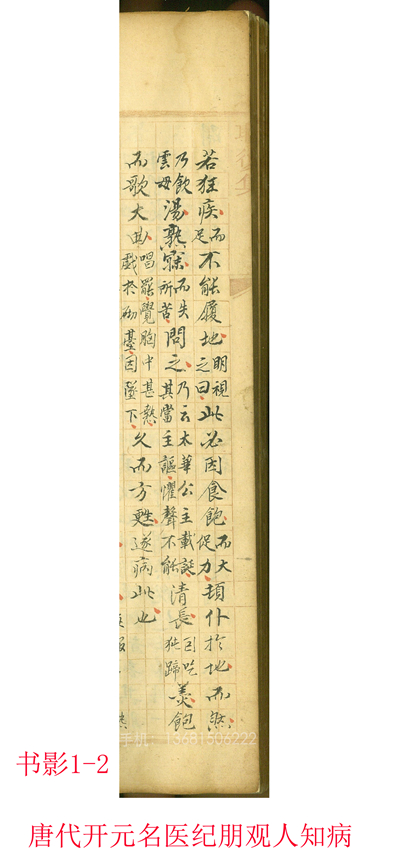 若狂疾而足不能履地明視之曰此必因食飽而大促力頓仆於地而然
乃飲雲母湯熟寐而失所苦問之乃云太華公主載誕其當主謳懼聲不能清長吃蹄羹飽
而歌大曲唱罷覺胸中甚熱戲於砌臺因墜下久而方甦遂病此也
手机：13681506222
书影1-2
唐代开元名医纪朋观人知病